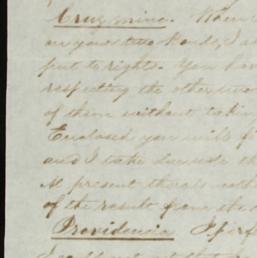 Cruz mine. When
on your two Bonds, I a
put to rights. You hav
respecting the other
of them without takin
Enclosed you will f
and I take
At present there's noth
of the result from the
Providencia I perf